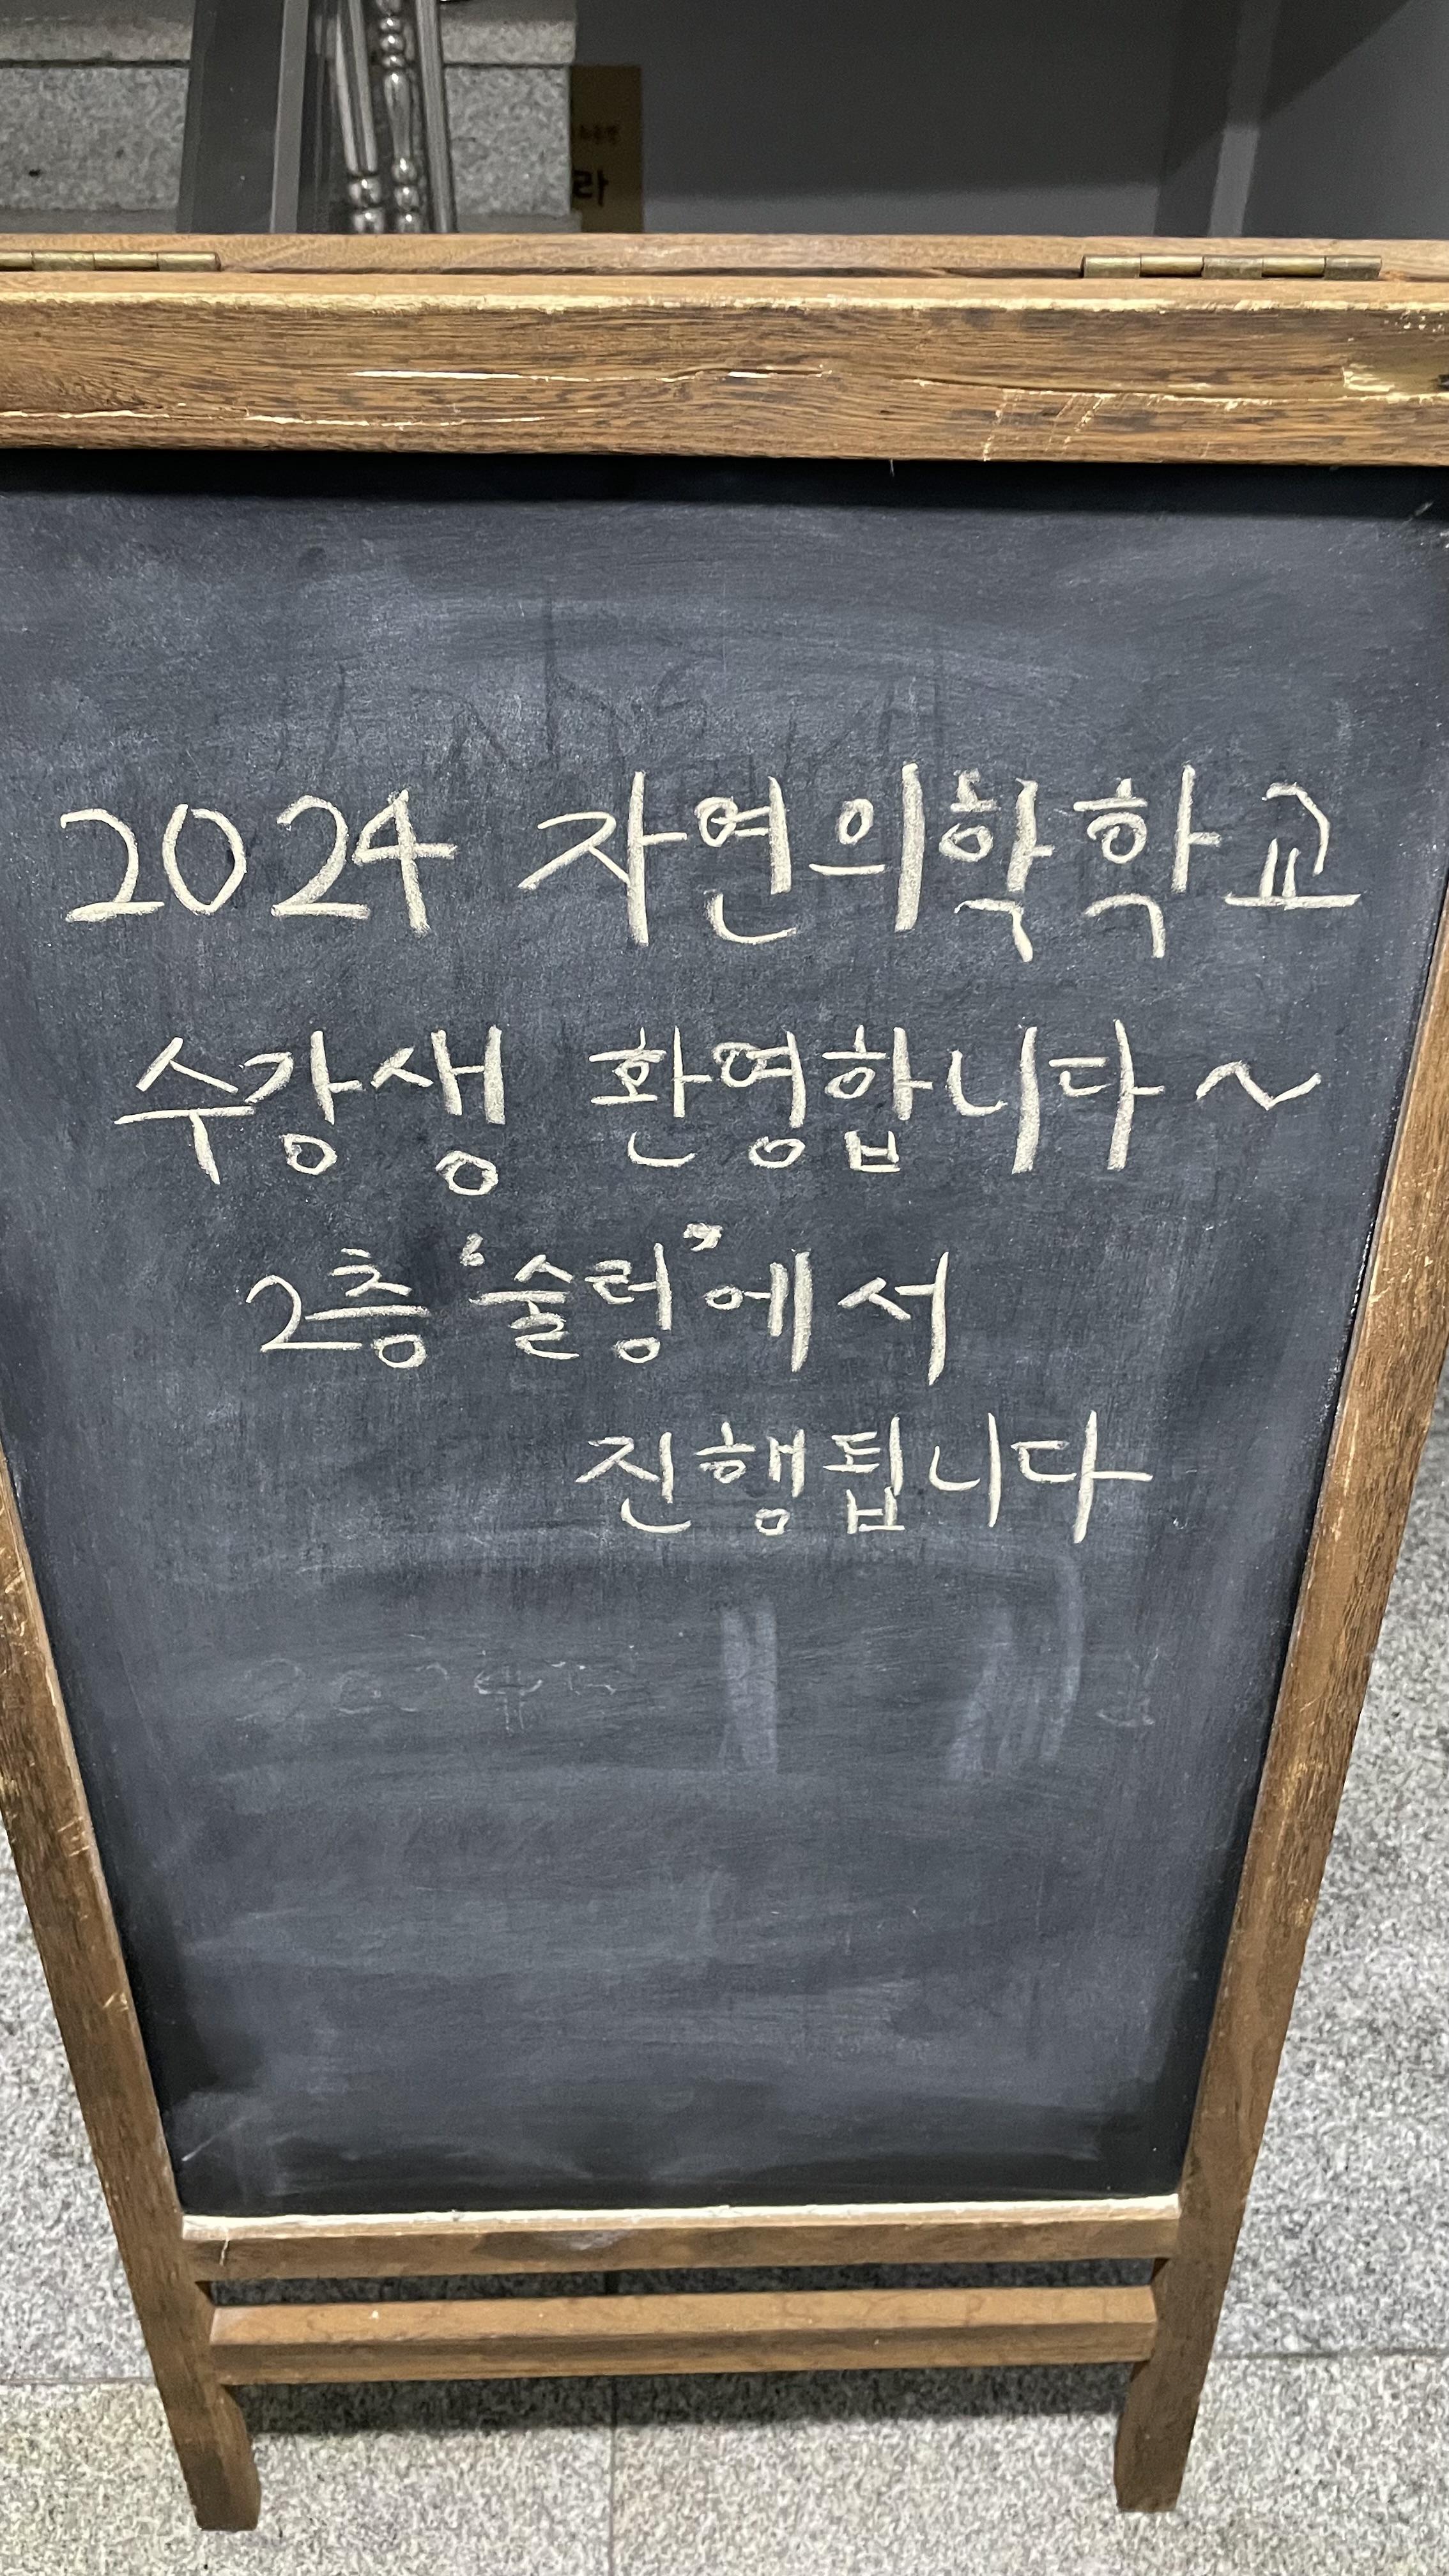 라
2024 자연의학학교
수강생 환영합니다~
2층 "술렁"에서
진행됩니다